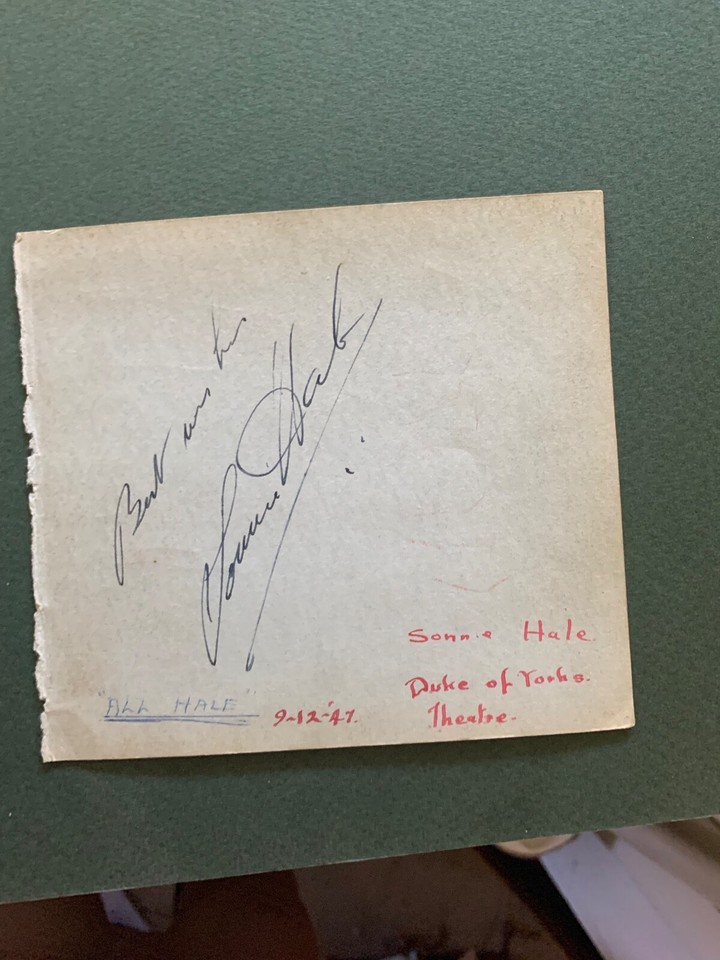 Best wishes
Sonnie Hale
Sonnie Hale
Duke of Yorks.
Theatre.
"ALL HALE"
9-12-'47.